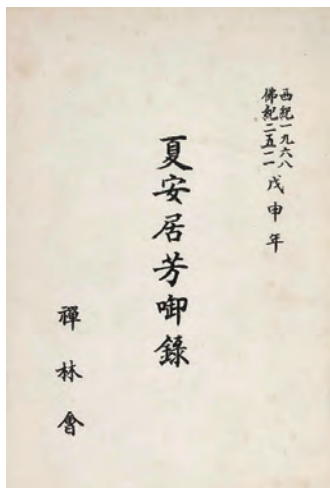 西紀一九六八
佛紀二五一一
戊申年
夏安居芳啣錄
禪林會